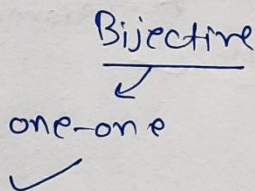 Bijective
one-one